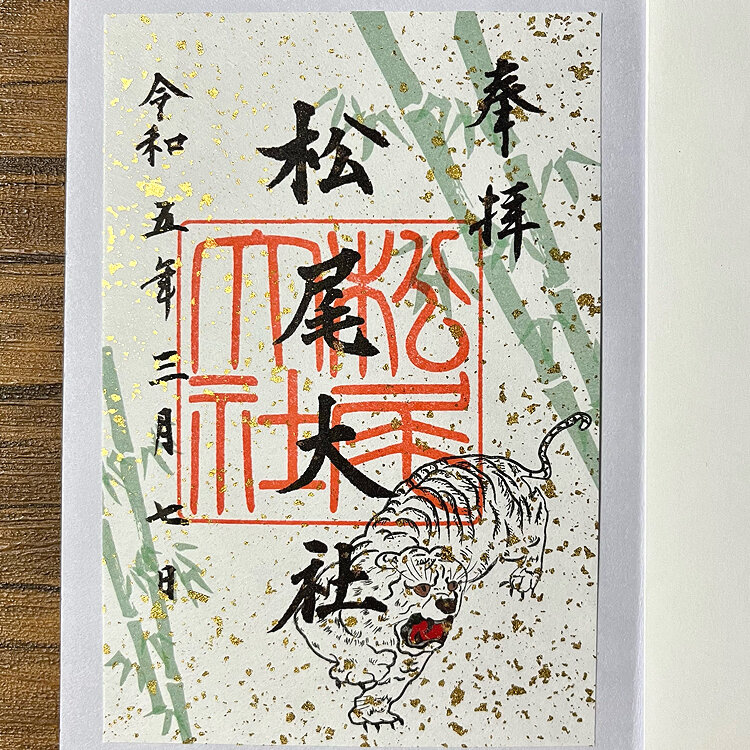 奉拝
松尾大社
松尾大社
令和五年三月七日